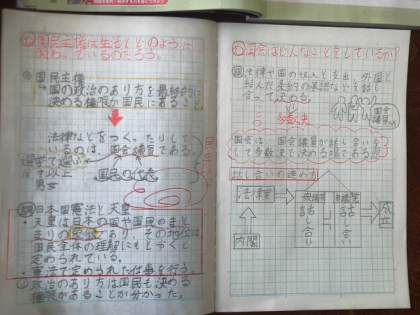 国民主権は生活とどのように
関わっているのだろう。
国民主権
国の政治のあり方を最終的に
決める権限が国民にあること
法律などをつくったりして
いるのは、国会議員である。
選挙で選ぶ
才以上
男女
国民の代表
日本国憲法と天皇
・天皇は日本の国や国民のまと
まりの象徴であり、その地位は
国民全体の理解にもとづくと
定められている。
・憲法で定められた仕事を行う。
政治のあり方は国民も決める
権限があることが分かった。
国会はどんなことをしているか
法律や国の収入と支出、外国と
結んだ条約の承認などを話し
合って決める。
国会
議員
多数決
国会は、国会議員が話し合いを
して多数決で決める場である。
話し合いの進め方
法律案
内閣
衆議院
話し合い
参議院
話し合い
成立